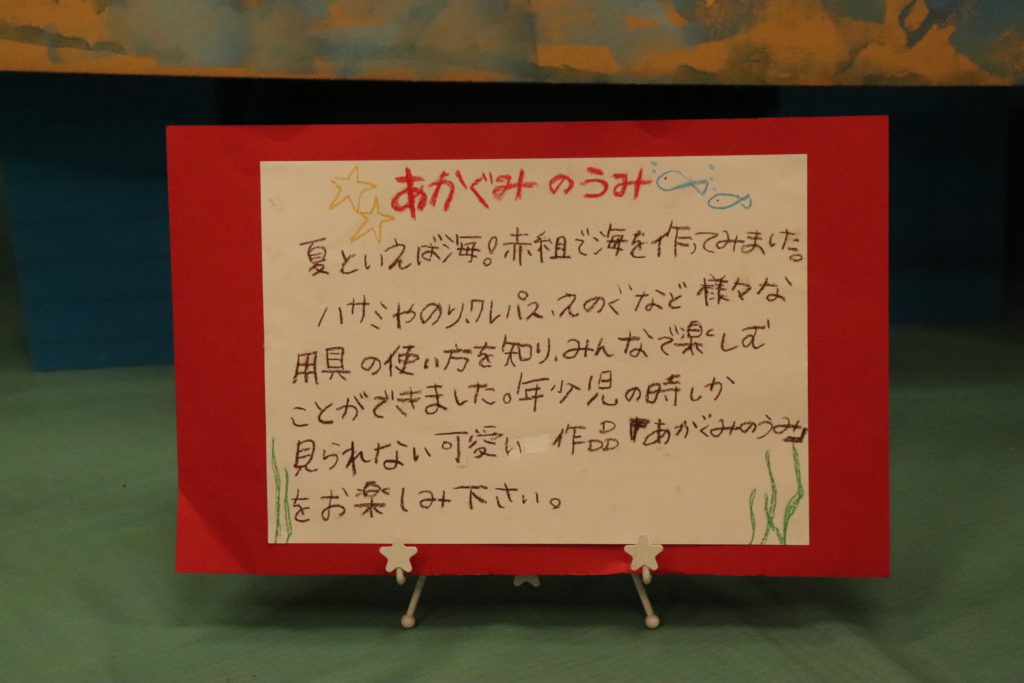 あかぐみのうみ
夏といえば海!赤組で海を作ってみました。
ハサミやのり、クレパス、えのぐなど様々な
用具の使い方を知り、みんなで楽しむ
ことができました。年少児の時しか
見られない可愛い作品『あかぐみのうみ』
をお楽しみ下さい。